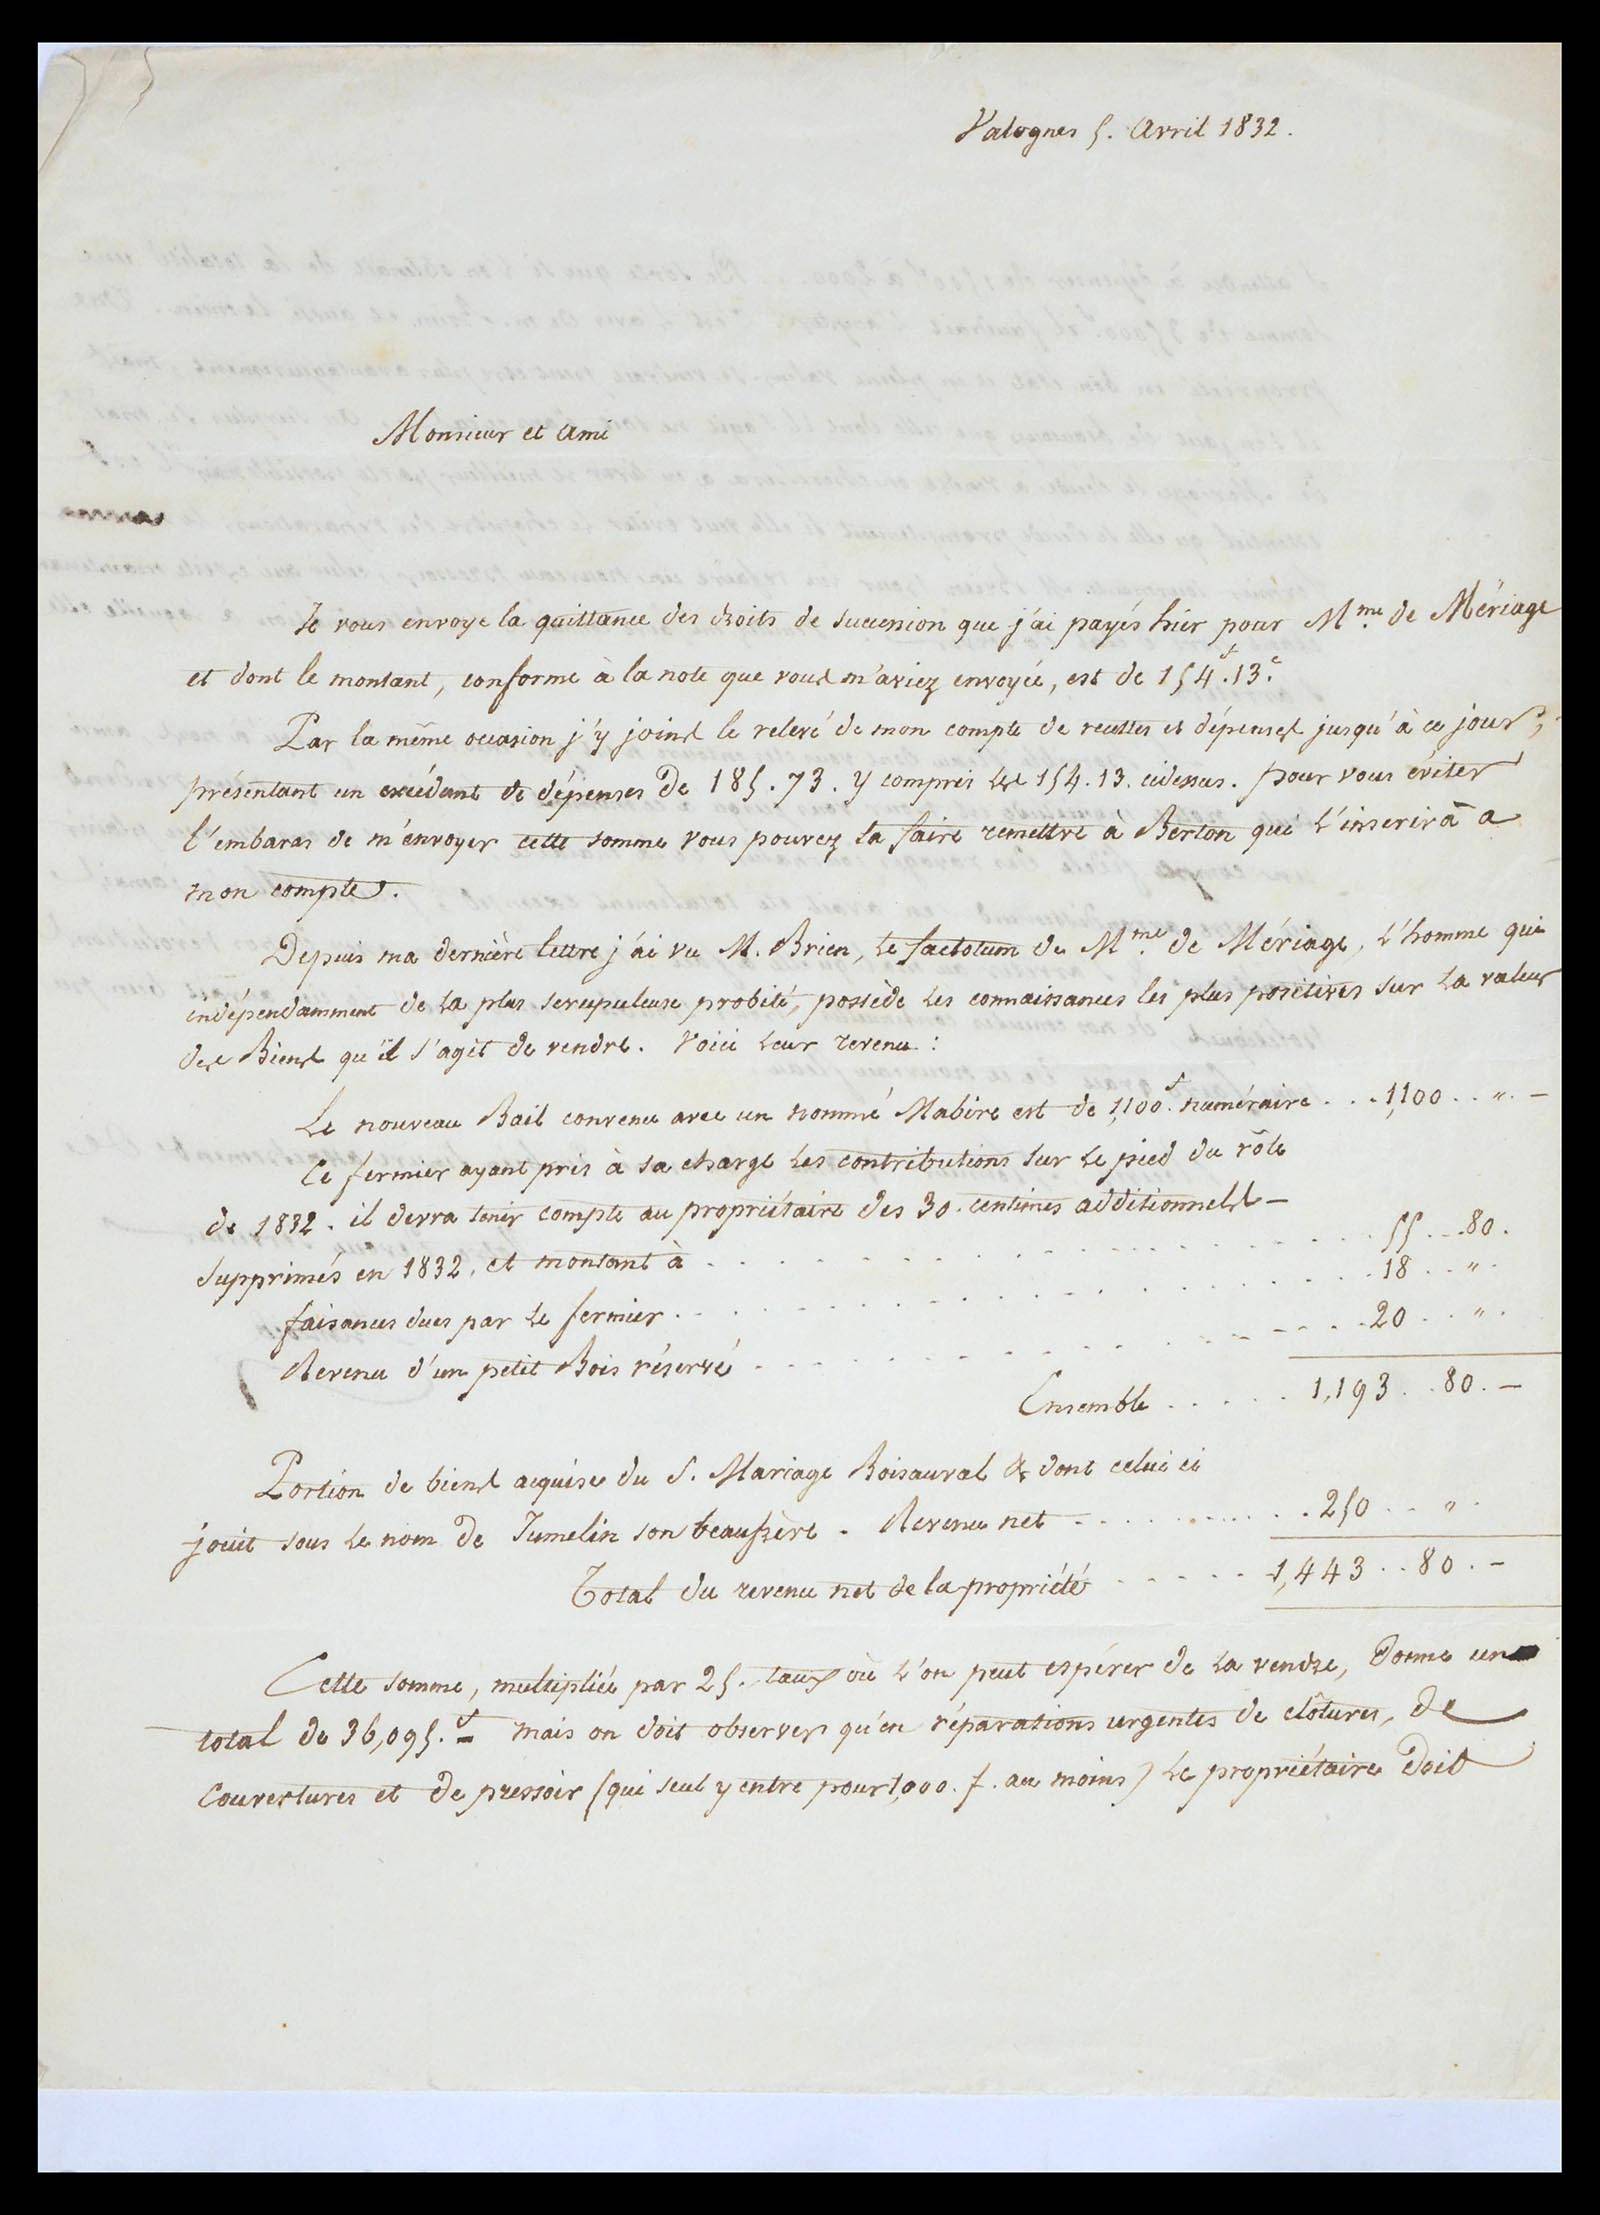 Valognes 5. Avril 1832.
Monsieur et Ami
Je vous envoye la quittance des droits de succession que j'ai payés hier pour M.me de Mériage
et dont le montant, conforme à la note que vous m'aviez envoyée, est de 154.f 13.c
Par la même occasion j'y joins le relevé de mon compte de recettes et dépenses jusqu'à ce jour,
présentant un excédant de dépenses de 185.73. y compris les 154.13. cidessus. pour vous éviter
l'embaras de m'envoyer cette somme vous pouvez la faire remettre à Berton qui l'inserira a
mon compte.
Depuis ma dernière lettre j'ai vu M. Brien, le factotum de M.me de Mériage, l'homme qui
indépendamment de la plus scrupuleuse probité, possède les connaissances les plus positives sur la valeur
des Biens qu'il s'agit de vendre. Voici leur revenu :
Le nouveau Bail convenu avec un nommé Mabire est de 1,100.f numéraire . . . 1,100 . . " . —
Ce fermier ayant pris à sa charge les contributions sur le pied du rôle
de 1832. il devra tenir compte au propriétaire des 30. centimes additionnels —
supprimés en 1832. et montant à . . . . . . 55 . . . 80 .
faisances dues par le fermier . . . . . . 18 . . " .
Revenu d'un petit Bois réservé . . . . . . 20 . . " .
Ensemble . . . . . 1,193 . . 80 . —
Portion de biens acquise du S. Mariage Boisauval & dont celui ci
jouit sous le nom de Jumelin son beaufrère . Revenu net . . . . . . 250 . . " .
Total du revenu net de la propriété . . . . . 1,443 . . 80 . —
Cette somme, multipliée par 25. taux où l'on peut espérer de la vendre, donne un
total de 36,095.f — mais on doit observer qu'en réparations urgentes de clôtures, de
Couvertures et de pressoir (qui seul y entre pour 1,000. f. au moins) le propriétaire doit